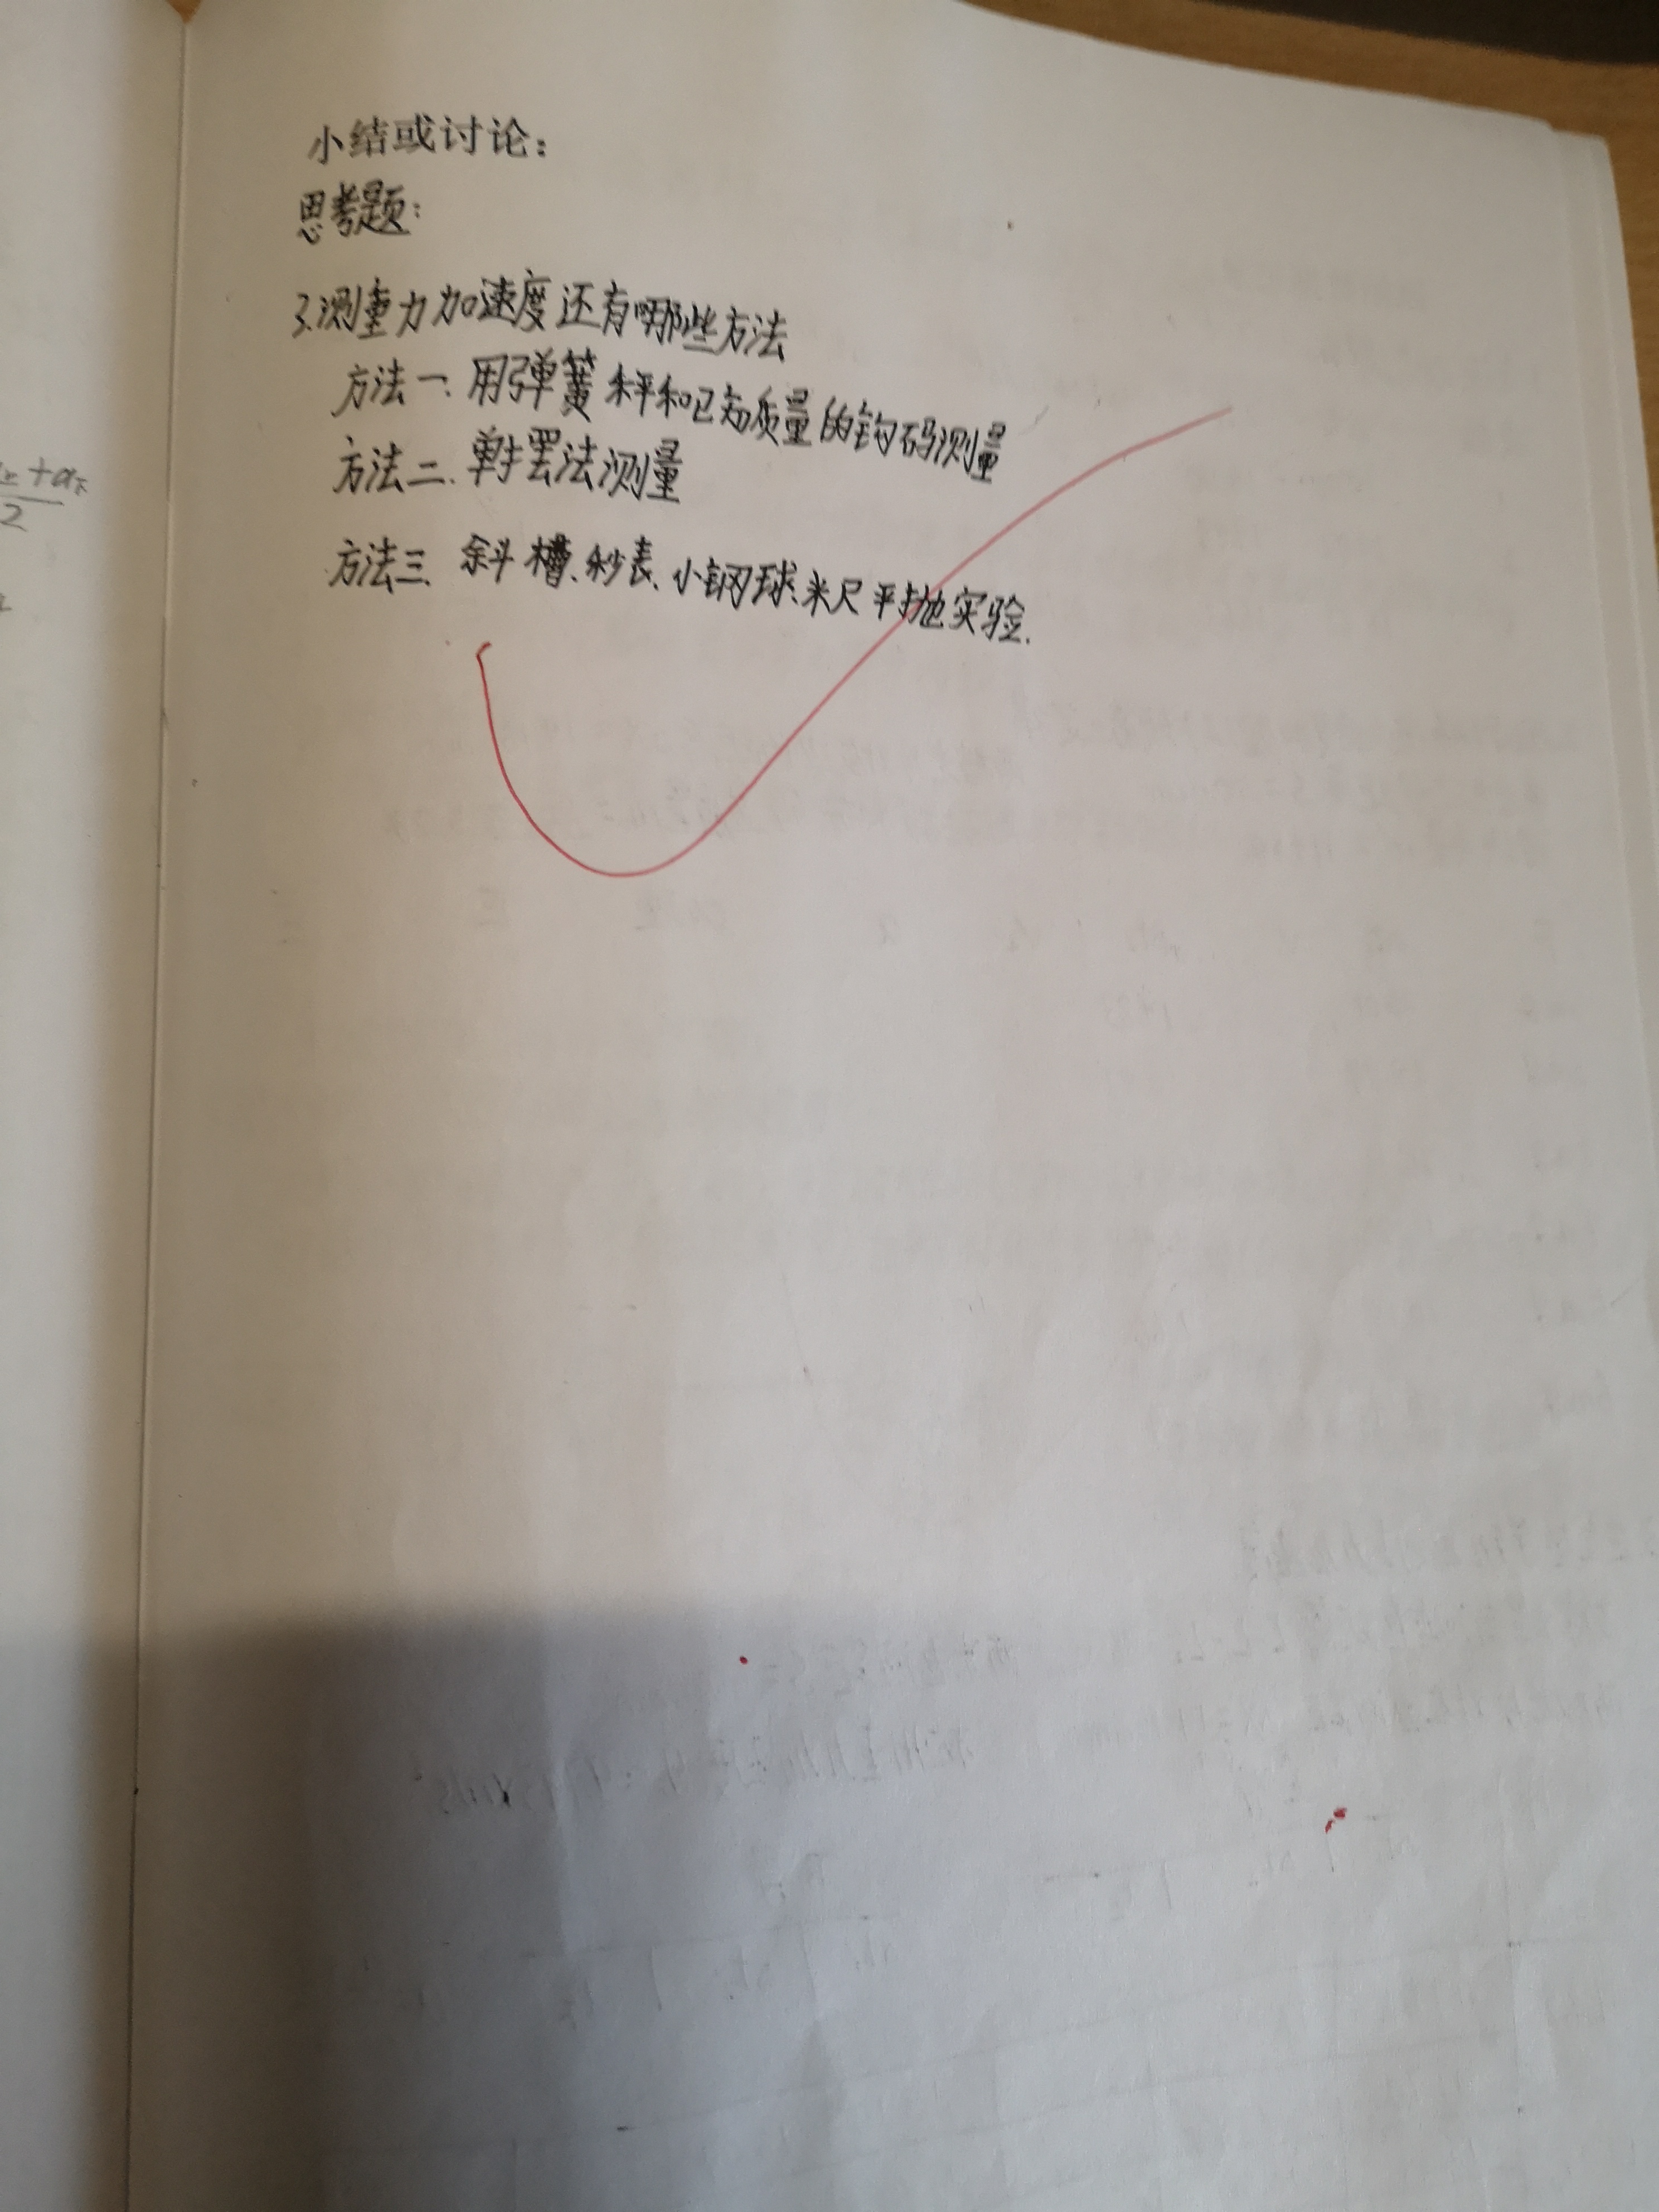 小结或讨论：
思考题：
3.测重力加速度还有哪些方法
方法一.用弹簧秤和已知质量的钩码测量
方法二.单摆法测量
方法三.斜槽、秒表、小钢球、米尺平抛实验.
2